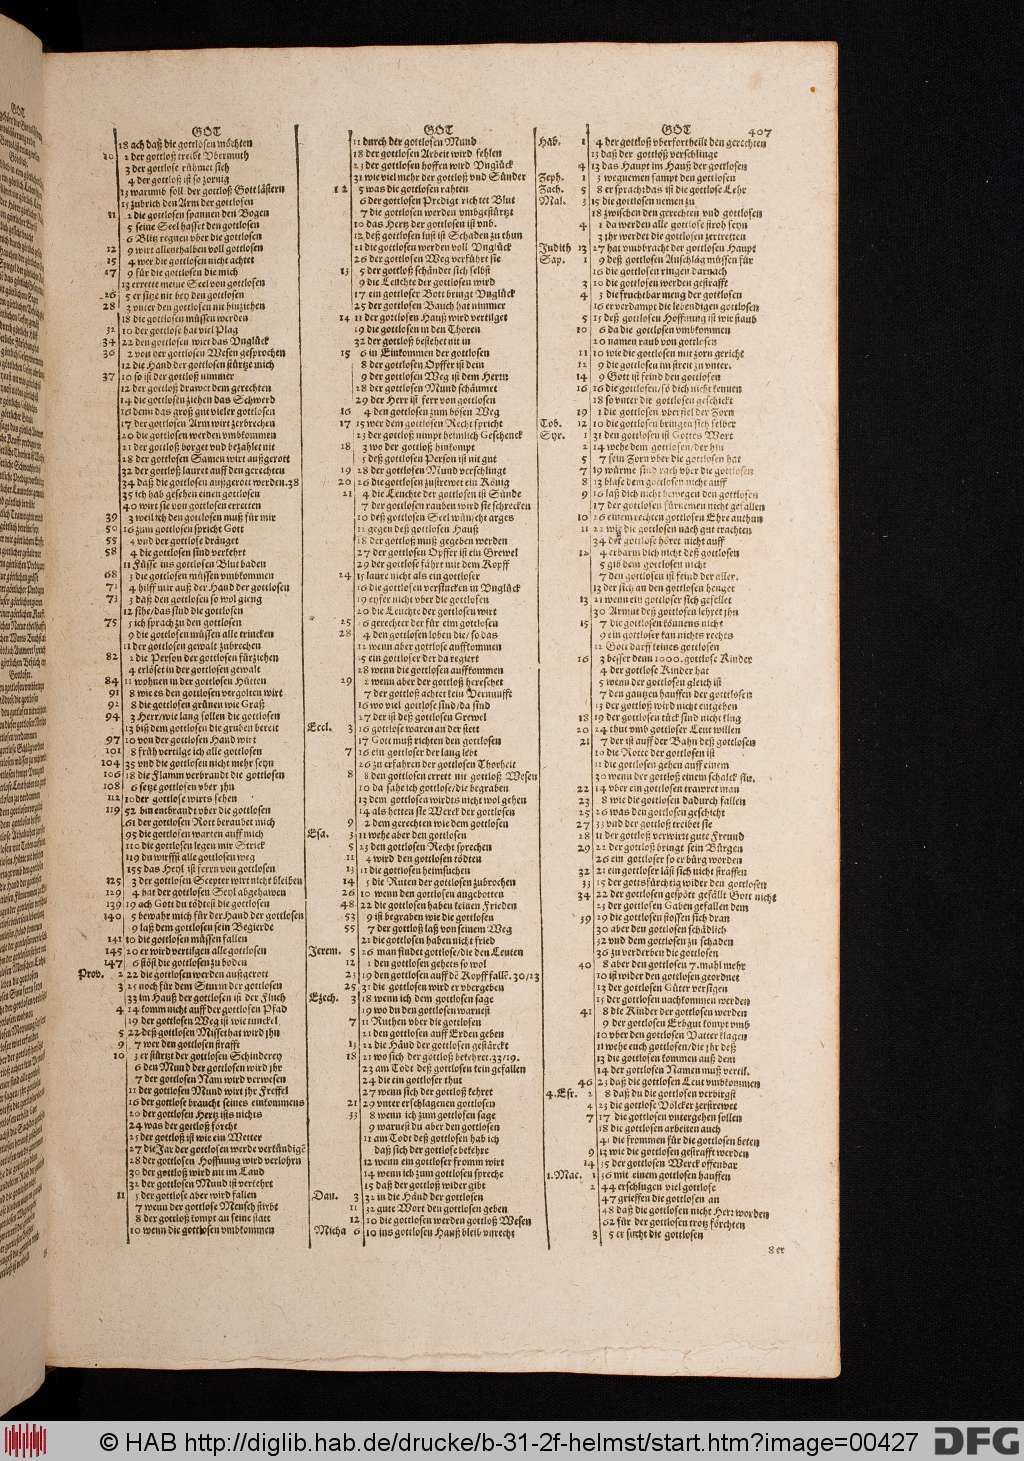 GOT
18 ach daß die gottlosen möchten
10 2 der gottloß treibt Vbermuth
3 der gottlose rühmet sich
4 der gottloß ist so zornig
13 warumb soll der gottloß Gott lästern
15 zubrich den Arm der gottlosen
11 2 die gottlosen spannen den Bogen
5 seine Seel hasset den gottlosen
6 Blitz regnen vber die gottlosen
12 9 wirt allenthalben voll gottlosen
15 4 wer die gottlosen nicht achtet
17 9 für die gottlosen die mich
13 errette meine Seel von gottlosen
26 5 er sitze nit bey den gottlosen
28 3 vnter den gottlosen nit hinziehen
18 die gottlosen müssen werden
32 10 der gottlose hat viel Plag
34 22 den gottlosen wirt das Vnglück
36 2 von der gottlosen Wesen gesprochen
12 die Hand der gottlosen stürtze mich
37 10 so ist der gottloß nimmer
12 der gottloß drawet dem gerechten
14 die gottlosen ziehen das Schwerd
16 denn das groß gut vieler gottlosen
17 der gottlosen Arm wirt zerbrechen
20 die gottlosen werden vmbkommen
21 der gottloß borget vnd bezahlet nit
28 der gottlosen Samen wirt außgerott
32 der gottloß lauret auff den gerechten
34 daß die gottlosen außgerott werden.38
35 ich hab gesehen einen gottlosen
40 wirt sie von gottlosen erretten
39 3 weil ich den gottlosen muß für mir
50 16 zum gottlosen spricht Gott
55 4 vnd der gottlose dräuget
58 4 die gottlosen sind verkehrt
11 Füsse ins gottlosen Blut baden
68 3 die gottlosen müssen vmbkommen
71 4 hilff mir auß der Hand der gottlosen
73 3 daß den gottlosen so wol gieng
12 sihe/das sind die gottlosen
75 5 ich sprach zu den gottlosen
9 die gottlosen müssen alle trincken
11 der gottlosen gewalt zubrechen
82 2 die Person der gottlosen fürziehen
4 erlöset in der gottlosen gewalt
84 11 wohnen in der gottlosen Hütten
91 8 wie es den gottlosen vergolten wirt
92 8 die gottlosen grünen wie Graß
94 3 Herr/wie lang sollen die gottlosen
13 biß dem gottlosen die gruben bereit
97 10 von der gottlosen Hand wirt
101 8 früh vertilge ich alle gottlosen
104 35 vnd die gottlosen nicht mehr seyn
106 18 die Flamm verbrandt die gottlosen
108 6 setze gottlosen vber jhn
112 10 der gottlose wirts sehen
119 52 bin entbrandt vber die gottlosen
61 der gottlosen Rott beraubet mich
95 die gottlosen warten auff mich
110 die gottlosen legen mir Strick
119 du wirffst alle gottlosen weg
155 das Heyl ist fern von gottlosen
125 3 der gottlosen Scepter wirt nicht bleiben
129 4 hat der gottlosen Seyl abgehawen
139 19 ach Gott du tödtest die gottlosen
140 5 bewahr mich für der Hand der gottlosen
9 laß dem gottlosen sein Begierde
141 10 die gottlosen müssen fallen
145 20 er wird vertilgen alle gottlosen
147 6 stößt die gottlosen zu boden
Prov. 2 22 die gottlosen werden außgerott
3 25 noch für dem Sturm der gottlosen
33 im Hauß der gottlosen ist der Fluch
4 14 komm nicht auff der gottlosen Pfad
19 der gottlosen Weg ist wie tunckel
5 22 deß gottlosen Missethat wird jhn
9 7 wer den gottlosen strafft
10 3 er stürtzt der gottlosen Schinderey
6 den Mund der gottlosen wird jhr
7 der gottlosen Nam wird verwesen
11 der gottlosen Mund wirt jhr Freffel
16 der gottlose braucht seines einkommens
20 der gottlosen Hertz ists nichts
24 was der gottloß förcht
25 der gottloß ist wie ein Wetter
27 die Jar der gottlosen werde verkündigẽ
28 der gottlosen Hoffnung wird verlohrn
30 der gottloß wird nit im Land
32 der gottlosen Mund ist verkehrt
11 5 der gottlose aber wird fallen
7 wenn der gottlose Mensch stirbt
8 der gottloß kompt an seine statt
10 wenn die gottlosen vmbkommen
GOT
11 durch der gottlosen Mund
18 der gottlosen Arbeit wird fehlen
23 der gottlosen hoffen wird Vnglück
31 wie viel mehr der gottloß vnd Sünder
12 5 was die gottlosen rahten
6 der gottlosen Predigt richtet Blut
7 die gottlosen werden vmbgestürtzt
10 das Hertz der gottlosen ist vnb.
12 deß gottlosen lust ist Schaden zu thun
21 die gottlosen werden voll Vnglück
26 der gottlosen Weg verführt sie
13 5 der gottloß schändet sich selbst
9 die Leuchte der gottlosen wird
17 ein gottloser Bott bringt Vnglück
25 der gottlosen Bauch hat nimmer
14 11 der gottlosen Hauß wird vertilget
19 die gottlosen in den Thoren
32 der gottloß bestehet nit in
15 6 in Einkommen der gottlosen
8 der gottlosen Opffer ist dem
9 der gottlosen Weg ist dem Herrn
28 der gottlosen Mund schäumet
29 der Herr ist fern von gottlosen
16 4 den gottlosen zum bösen Weg
17 15 wer dem gottlosen Recht spricht
23 der gottloß nimpt heimlich Geschenck
18 3 wo der gottloß hinkompt
5 deß gottlosen Person ist nit gut
19 28 der gottlosen Mund verschlingt
20 26 die gottlosen zustrewet ein König
21 4 die Leuchte der gottlosen ist Sünde
7 der gottlosen rauben wird sie schrecken
10 deß gottlosen Seel wünscht arges
12 gegen deß gottlosen Hauß
18 der gottloß muß gegeben werden
27 der gottlosen Opffer ist ein Grewel
29 der gottlose fährt mit dem Kopff
24 15 laure nicht als ein gottloser
16 die gottlosen versincken in Vnglück
19 erzürne nicht vber die gottlosen
20 die Leuchte der gottlosen wirt
25 26 gerechter der für eim gottlosen
28 4 den gottlosen loben die/so das
12 wenn aber gottlose auffkommen
15 ein gottloser der da regiert
28 wenn die gottlosen auffkommen
29 2 wenn aber der gottloß herschet
7 der gottloß achtet kein Vernunfft
16 wo viel gottlose sind/da sind
27 der ist deß gottlosen Grewel
Eccl. 3 16 gottlose waren an der stett
17 Gott muß richten den gottlosen
7 16 ein gottloser der lang lebt
26 zu erfahren der gottlosen Thorheit
8 8 den gottlosen errett nit gottloß Wesen
10 da sahe ich gottlose/die begraben
13 dem gottlosen wirdts nicht wol gehen
14 als hetten sie Werck der gottlosen
9 2 dem gerechten wie dem gottlosen
Esa. 3 11 wehe aber den gottlosen
5 23 den gottlosen Recht sprechen
11 4 wird den gottlosen tödten
13 11 die gottlosen heimsuchen
14 5 die Ruten der gottlosen zubrochen
26 10 wenn den gottlosen angebotten
48 22 die gottlosen haben keinen Frieden
53 9 ist begraben wie die gottlosen
55 7 der gottloß laß von seinem Weg
21 die gottlosen haben nicht fried
Jerem. 5 26 man findet gottlose/die den Leuten
12 1 den gottlosen gehets so wol
23 19 den gottlosen auff dẽ Kopff fallẽ.30/23
25 31 die gottlosen wird er vbergeben
Ezech. 3 18 wenn ich dem gottlosen sage
19 wo du den gottlosen warnest
7 11 Ruthen vber die gottlosen
21 den gottlosen auff Erden geben
13 22 die Händ der gottlosen gestärckt
18 21 wo sich der gottloß bekehret.33/19.
23 am Tod deß gottlosen kein gefallen
24 die ein gottloser thut
27 wenn sich der gottloß kehret
21 29 vnter erschlagenen gottlosen
33 8 wenn ich zum gottlosen sage
9 warnest du aber den gottlosen
11 am Tod deß gottlosen hab ich
daß sich der gottlose bekehre
12 wenn ein gottloser fromm wirt
14 wenn ich zum gottlosen spreche
15 daß der gottloß wider gibt
Dan. 3 32 in die Händ der gottlosen
11 32 gute Wort den gottlosen geben
12 10 die gottlosen werden gottloß Wesen
Micha 6 10 ins gottlosen Hauß bleib vnrecht
GOT 407
Hab. 1 4 der gottloß vberfortheilt den gerechten
13 daß der gottloß verschlinge
4 13 das Haupt im Hauß der gottlosen
Zeph. 1 3 wegnemen sampt den gottlosen
Zach. 5 8 er sprach:das ist die gottlose Lehr
Mal. 3 15 die gottlosen nemen zu
18 zwischen den gerechten vnd gottlosen
4 1 da werden alle gottlose stroh seyn
3 jhr werdet die gottlosen zertretten
Judith 13 27 hat vmbracht der gottlosen Haupt
Sap. 1 9 deß gottlosen Anschläg müssen für
16 die gottlosen ringen darnach
3 10 die gottlosen werden gestrafft
4 3 die fruchtbar meng der gottlosen
16 er verdampt die lebendigen gottlosen
5 15 deß gottlosen Hoffnung ist wie staub
10 6 da die gottlosen vmbkommen
20 namen raub von gottlosen
11 10 wie die gottlosen mit zorn gericht
12 9 die gottlosen im streit zu vnter.
14 9 Gott ist feind den gottlosen
16 16 die gottlosen/so dich nicht kennen
18 so vnter die gottlosen geschickt
19 1 die gottlosen vberfiel der Zorn
Tob. 12 10 die gottlosen bringen sich selber
Syr. 1 31 den gottlosen ist Gottes Wort
2 14 wehe dem gottlosen/der hin
5 7 sein Zorn vber die gottlosen hat
7 19 würme sind rach vber die gottlosen
8 13 blase dem gottlosen nicht auff
9 16 laß dich nicht bewegen den gottlosen
17 der gottlosen fürnemen nicht gefallen
10 26 einem rechten gottlosen Ehre anthun
11 22 wie die gottlosen nach gut trachten
34 der gottlose höret nicht auff
12 4 erbarm dich nicht deß gottlosen
5 gib dem gottlosen nicht
7 den gottlosen ist feind der aller.
13 der sich an den gottlosen henget
13 21 wenn ein gottloser sich gesellet
30 Armut deß gottlosen lehret jhn
15 7 die gottlosen könnens nicht
9 ein gottloser kan nichts rechts
12 Gott darff keines gottlosen
16 3 besser denn 1000. gottlose Kinder
4 der gottlose Kinder hat
5 wenn der gottlosen gleich ist
7 den gantzen hauffen der gottlosen
13 der gottloß wird nicht entgehen
18 19 der gottlosen tück sind nicht klug
20 24 thut vmb gottloser Leut willen
21 7 der ist auff der Bahn deß gottlosen
10 die Rotte der gottlosen ist
11 die gottlosen gehen auff einem
30 wenn der gottloß einem schalck flu.
22 14 vber ein gottlosen trawret man
23 8 wie die gottlosen dadurch fallen
25 26 was den gottlosen geschicht
27 33 vnd der gottloß treibet sie
28 11 der gottloß verwirrt gute Freund
29 22 der gottloß bringt sein Bürgen
26 ein gottloser so er bürg worden
32 21 ein gottloser läst sich nicht straffen
33 15 der gottsfürchtig wider den gottlosen
34 22 der gottlosen gespött gefällt Gott nicht
23 der gottlosen Gaben gefallen dem
39 29 die gottlosen stossen sich dran
30 aber den gottlosen schädlich
32 vnd dem gottlosen zu schaden
36 zu verderben die gottlosen
40 8 aber den gottlosen 7.mahl mehr
10 ist wider den gottlosen geordnet
13 der gottlosen Güter versigen
15 der gottlosen nachkommen werden
41 8 die Kinder der gottlosen werden
9 der gottlosen Erbgut kompt vmb
10 vber den gottlosen Vatter klagen
11 wehe euch gottlosen/die jhr deß
13 die gottlosen kommen auß dem
14 der gottlosen Namen muß vertil.
46 23 daß die gottlosen Leut vmbkommen
4.Esr. 2 8 daß du die gottlosen verbirgst
4 23 die gottlose Völcker zerstrewet
7 17 die gottlosen vntergehen sollen
18 die gottlosen arbeiten auch
41 die frommen für die gottlosen beten
9 13 wie die gottlosen gestrafft werden
14 35 der gottlosen Werck offenbar
1.Mac. 1 36 mit einem gottlosen hauffen
2 44 erschlugen viel gottlose
47 grieffen die gottlosen an
48 daß die gottlosen nicht Herr worden
62 für der gottlosen trotz förchten
3 5 er sucht die gottlosen
8 er
© HAB http://diglib.hab.de/drucke/b-31-2f-helmst/start.htm?image=00427
DFG